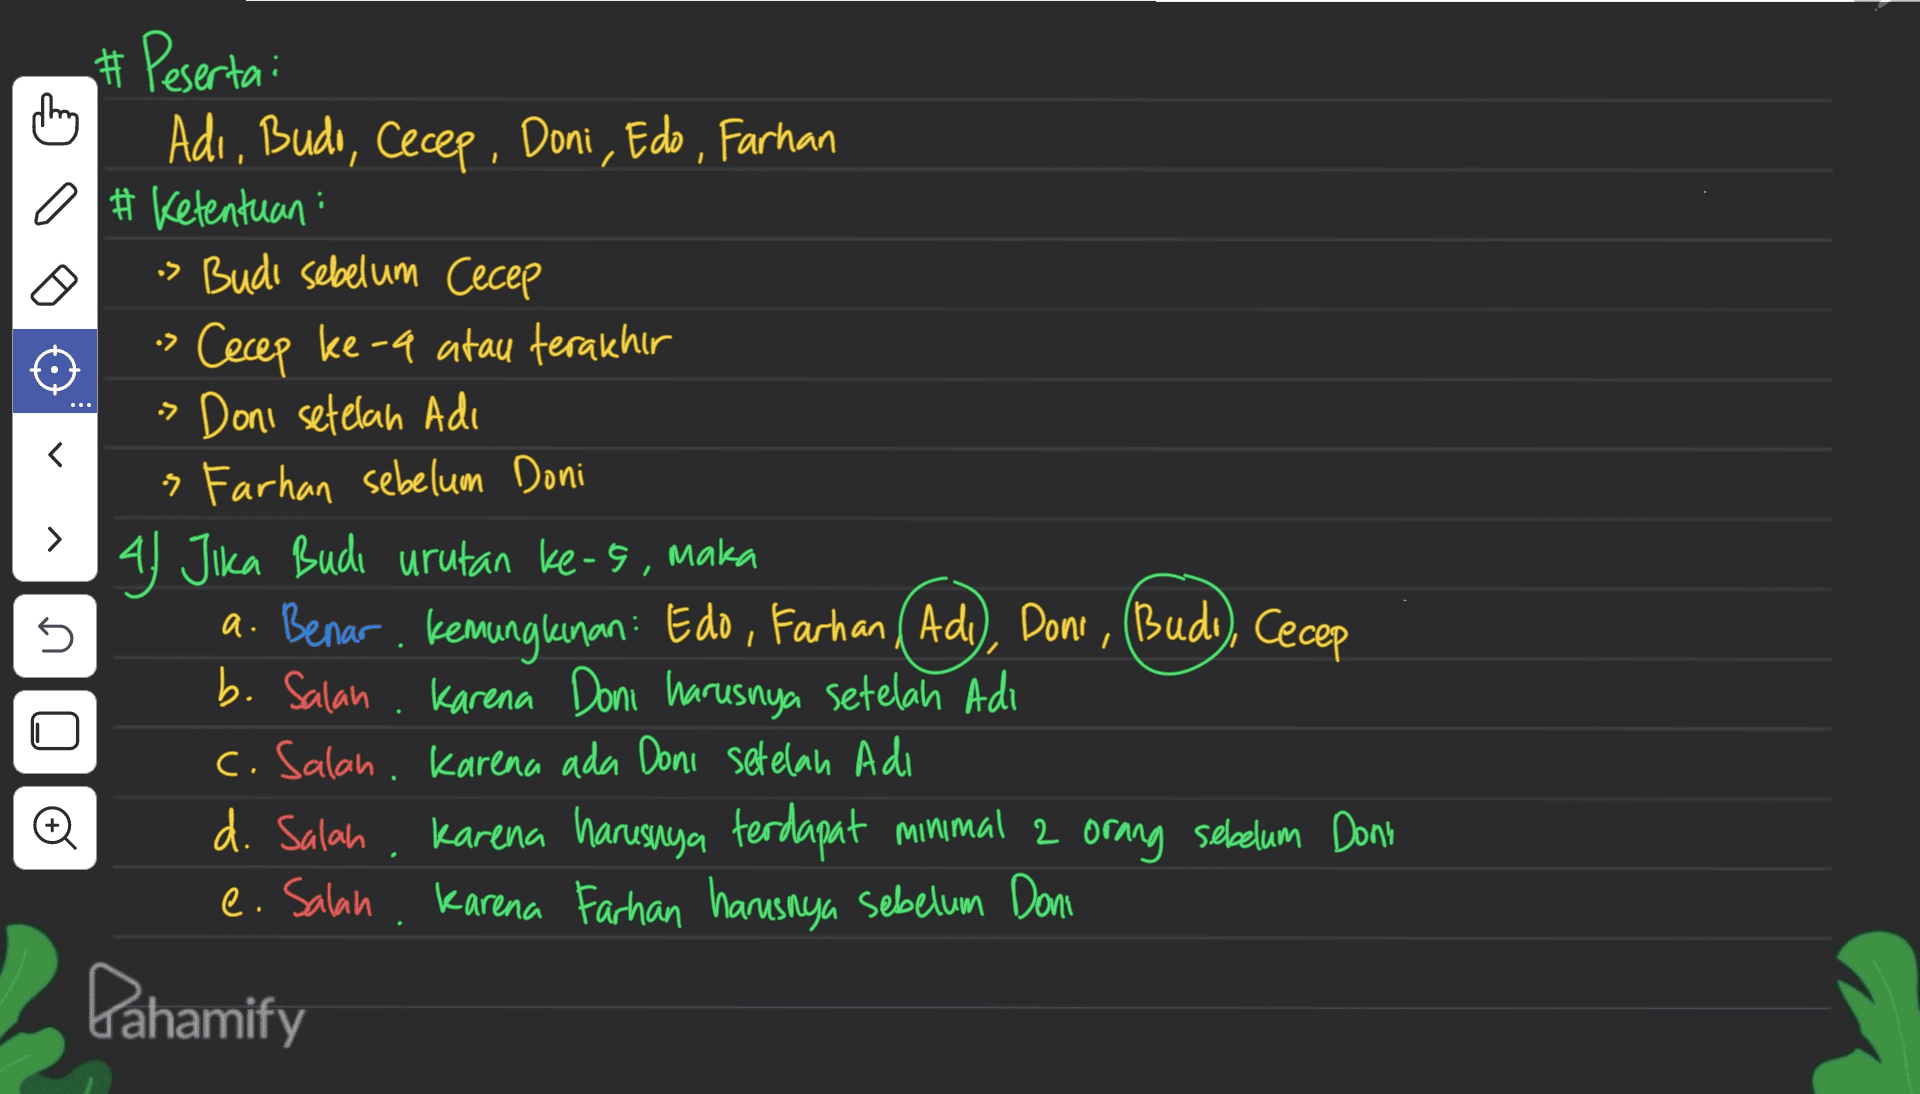 # Peserta:
Adi, Budi, Cecep, Doni, Edo, Farhan
# Ketentuan:
-> Budi sebelum Cecep
-> Cecep ke-4 atau terakhir
-> Doni setelah Adi
-> Farhan sebelum Doni
4) Jika Budi urutan ke-5, maka
a. Benar. kemungkinan: Edo, Farhan, Adi, Doni, Budi, Cecep
b. Salah. karena Doni harusnya setelah Adi
c. Salah. karena ada Doni setelah Adi
d. Salah. karena harusnya terdapat minimal 2 orang sebelum Doni
e. Salah. karena Farhan harusnya sebelum Doni
Pahamify